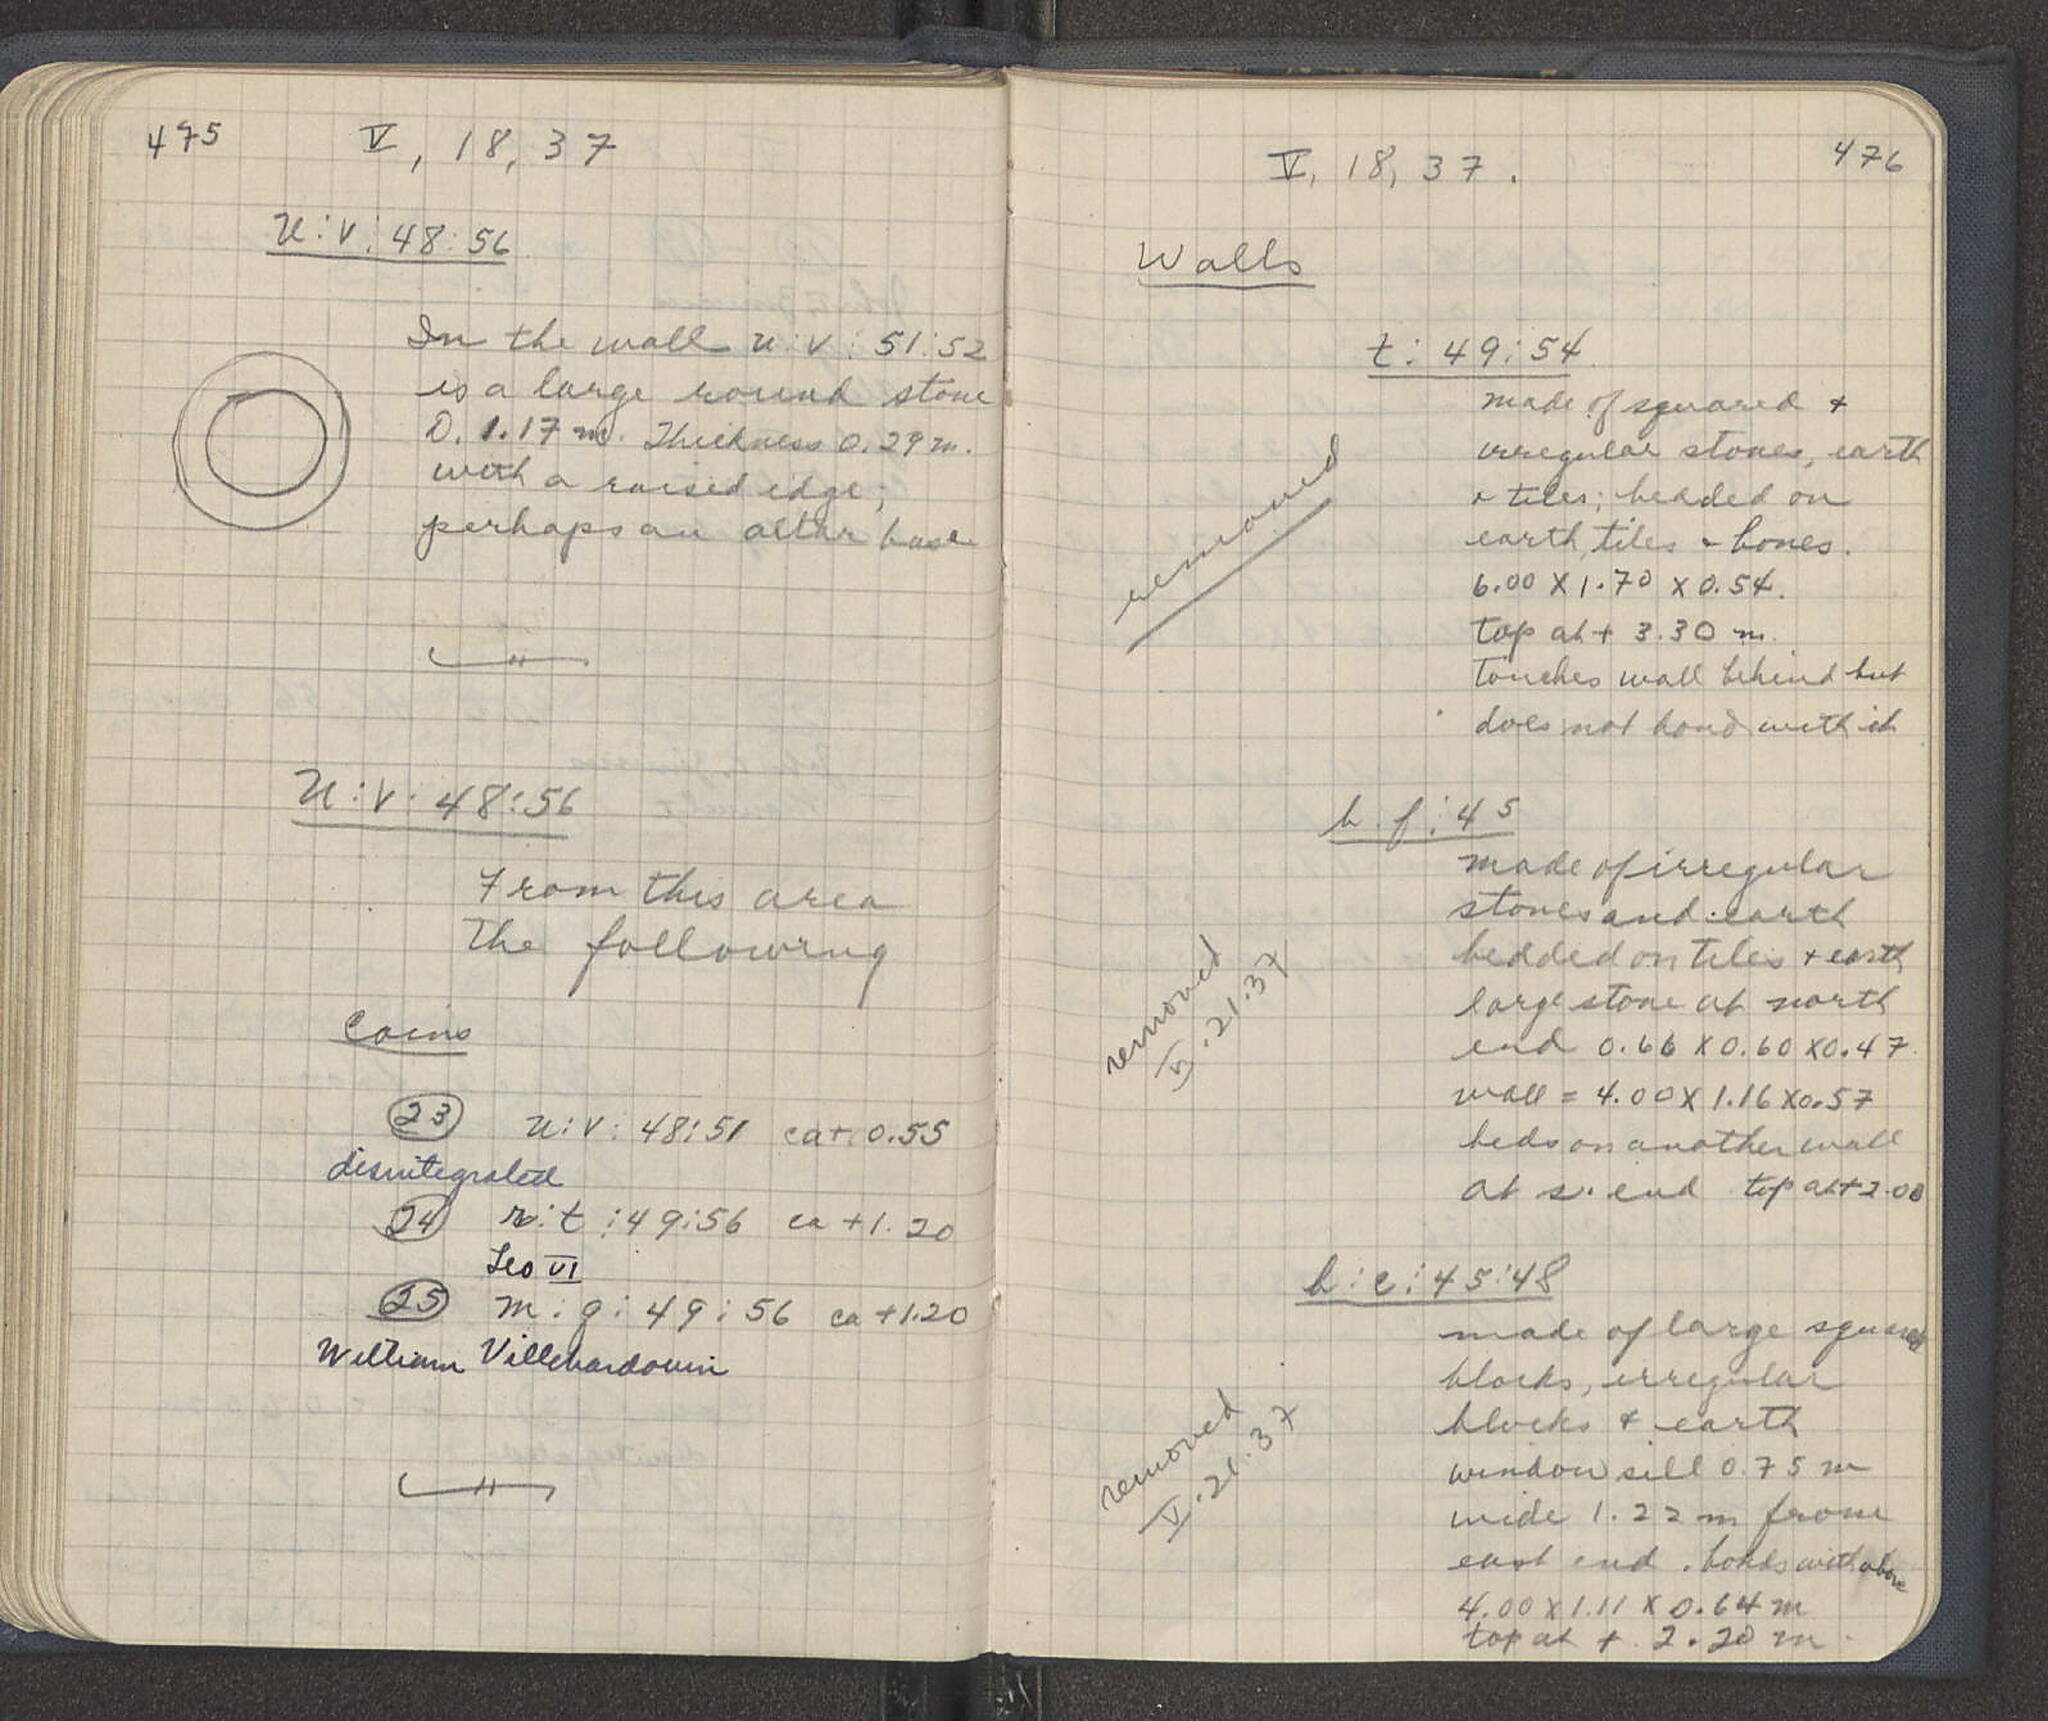 475
V, 18, 37
u:v:48:56
In the wall u:v:51:52
is a large round stone
D. 1.17 m. Thickness 0.29 m.
with a raised edge;
perhaps an altar base
u:v:48:56
From this area
the following
Coins
23 u:v:48:51 ca + 0.55
disintegrated
24 r:t:49:56 ca +1.20
Leo VI
25 m:q:49:56 ca +1.20
William Villehardouin
476
V, 18, 37.
Walls
t:49:54
made of squared +
irregular stones, earth
+ tiles; bedded on
earth, tiles + bones.
6.00 X 1.70 X 0.54.
top at + 3.30 m.
Touches wall behind but
does not bond with it
removed
b.f:45
made of irregular
stones and earth
bedded on tiles + earth
large stone at north
end 0.66 X 0.60 X 0.47.
wall = 4.00 X 1.16 X 0.57
beds on another wall
at s. end top at +2.00
removed
V.21.37
b:e:45:48
made of large squared
blocks, irregular
blocks + earth
window sill 0.75 m
wide 1.22 m from
east end. bonds with above
4.00 X 1.11 X 0.64 m
top at + 2.20 m.
removed
V.21.37